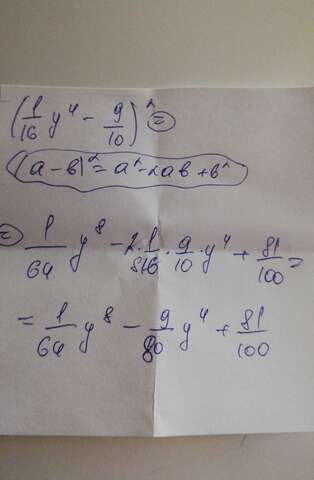 (1/16 y⁴ - 9/10)² =
(a - b)² = a² - 2ab + b²
= 1/64 y⁸ - 2 · 1/16 · 9/10 · y⁴ + 81/100 =
= 1/64 y⁸ - 9/80 y⁴ + 81/100